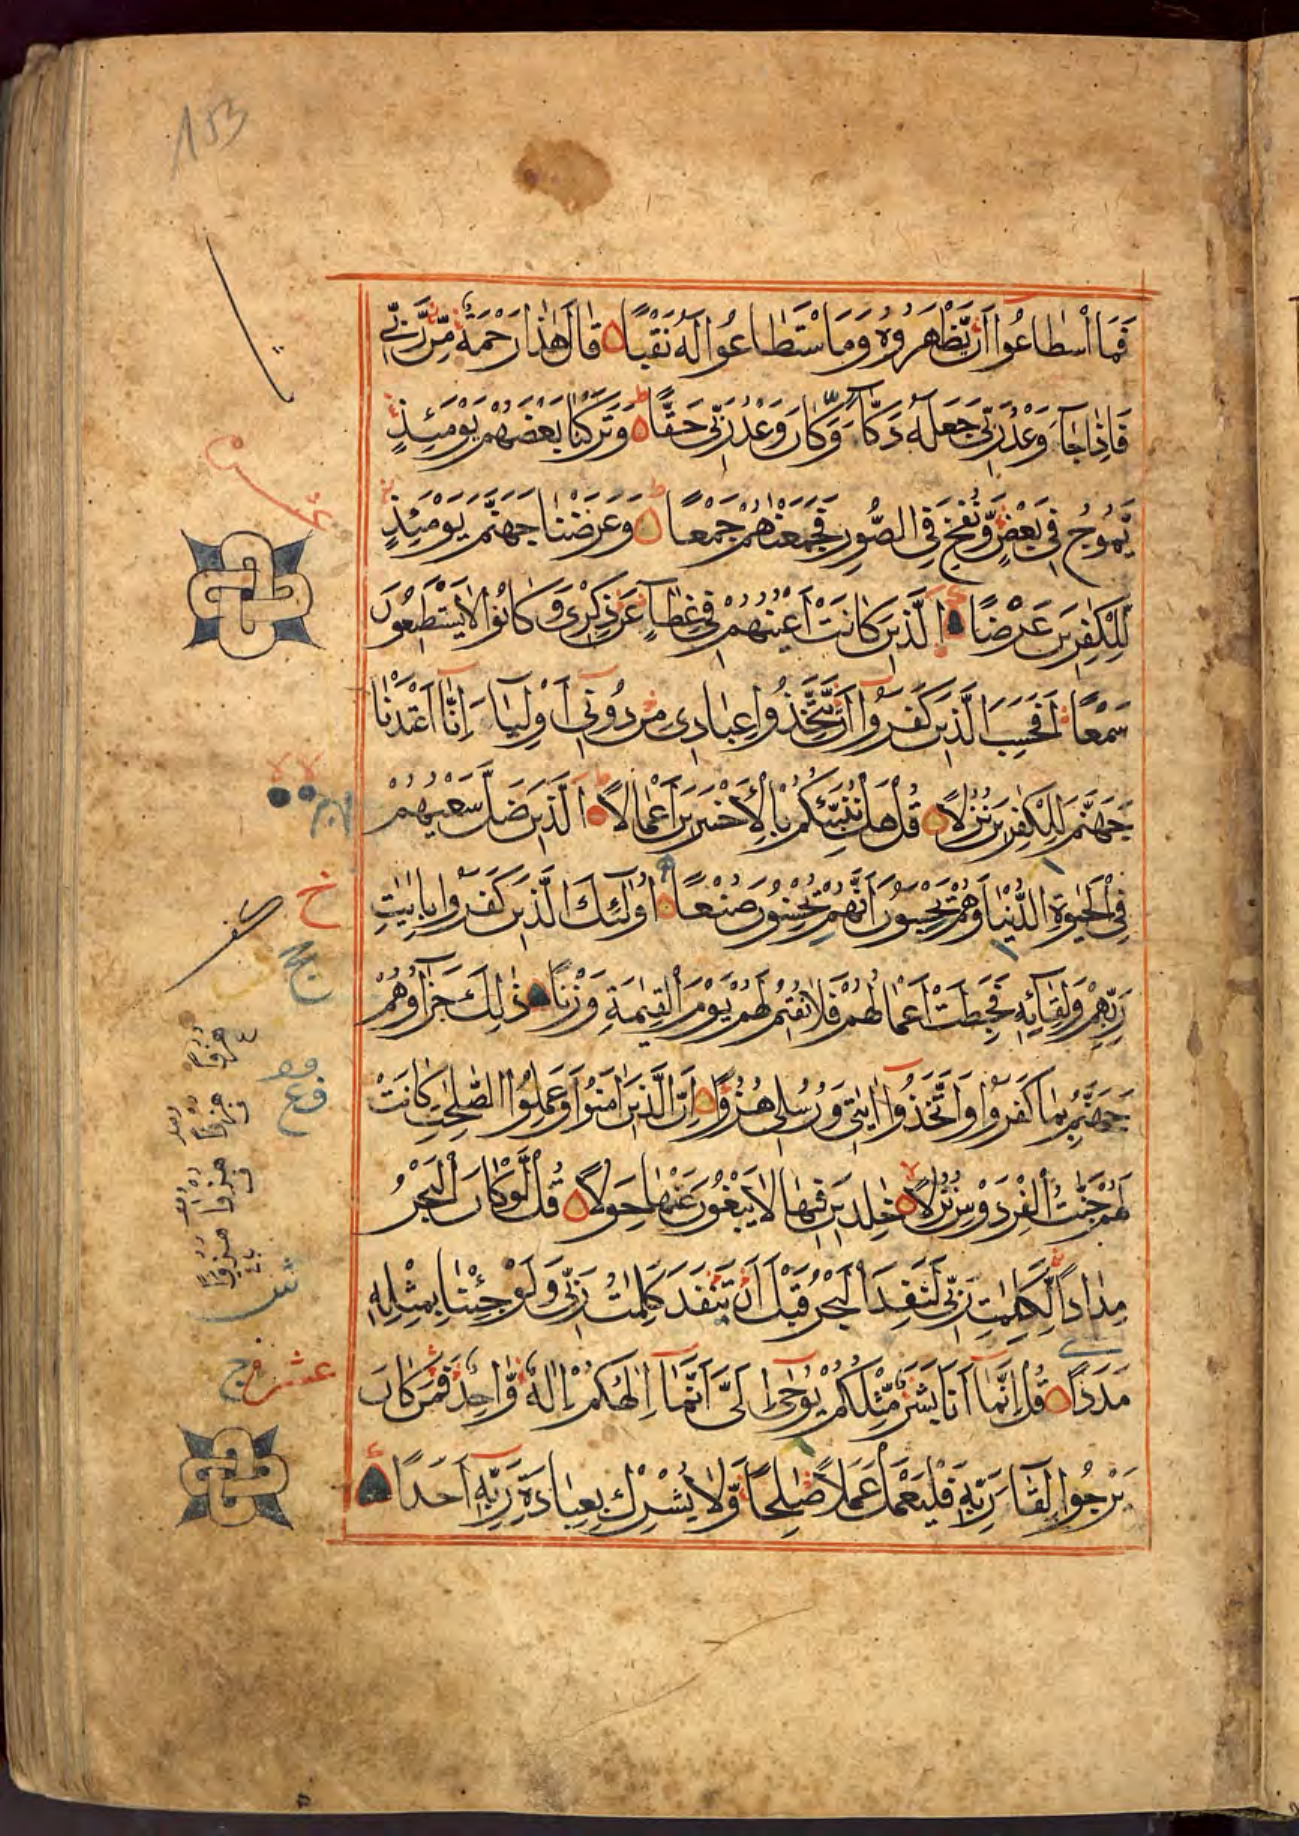 153
فَمَا اسْطَاعُوا اَنْ يَّظْهَرُوهُ وَمَا اسْتَطَاعُوا لَهُ نَقْبًا قَالَ هٰذَا رَحْمَةٌ مِّنْ رَّبِّي
فَاِذَا جَآءَ وَعْدُ رَبِّي جَعَلَهُ دَكَّآءَ وَكَانَ وَعْدُ رَبِّي حَقًّا وَتَرَكْنَا بَعْضَهُمْ يَوْمَئِذٍ
يَّمُوجُ فِي بَعْضٍ وَّنُفِخَ فِي الصُّورِ فَجَمَعْنٰهُمْ جَمْعًا وَعَرَضْنَا جَهَنَّمَ يَوْمَئِذٍ
لِّلْكٰفِرِينَ عَرْضًا الَّذِينَ كَانَتْ اَعْيُنُهُمْ فِي غِطَآءٍ عَنْ ذِكْرِي وَكَانُوا لَا يَسْتَطِيعُونَ
سَمْعًا اَفَحَسِبَ الَّذِينَ كَفَرُوا اَنْ يَّتَّخِذُوا عِبَادِي مِنْ دُونِي اَوْلِيَآءَ اِنَّا اَعْتَدْنَا
جَهَنَّمَ لِلْكٰفِرِينَ نُزُلًا قُلْ هَلْ نُنَبِّئُكُمْ بِالْاَخْسَرِينَ اَعْمَالًا الَّذِينَ ضَلَّ سَعْيُهُمْ
فِي الْحَيٰوةِ الدُّنْيَا وَهُمْ يَحْسَبُونَ اَنَّهُمْ يُحْسِنُونَ صُنْعًا اُولٰٓئِكَ الَّذِينَ كَفَرُوا بِاٰيٰتِ
رَبِّهِمْ وَلِقَآئِهِ فَحَبِطَتْ اَعْمَالُهُمْ فَلَا نُقِيمُ لَهُمْ يَوْمَ الْقِيٰمَةِ وَزْنًا ذٰلِكَ جَزَآؤُهُمْ
جَهَنَّمُ بِمَا كَفَرُوا وَاتَّخَذُوا اٰيٰتِي وَرُسُلِي هُزُوًا اِنَّ الَّذِينَ اٰمَنُوا وَعَمِلُوا الصّٰلِحٰتِ كَانَتْ
لَهُمْ جَنّٰتُ الْفِرْدَوْسِ نُزُلًا خٰلِدِينَ فِيهَا لَا يَبْغُونَ عَنْهَا حِوَلًا قُلْ لَّوْ كَانَ الْبَحْرُ
مِدَادًا لِّكَلِمٰتِ رَبِّي لَنَفِدَ الْبَحْرُ قَبْلَ اَنْ تَنْفَدَ كَلِمٰتُ رَبِّي وَلَوْ جِئْنَا بِمِثْلِهِ
مَدَدًا قُلْ اِنَّمَا اَنَا بَشَرٌ مِّثْلُكُمْ يُوحٰى اِلَيَّ اَنَّمَا اِلٰهُكُمْ اِلٰهٌ وَّاحِدٌ فَمَنْ كَانَ
يَرْجُوا لِقَآءَ رَبِّهِ فَلْيَعْمَلْ عَمَلًا صٰلِحًا وَّلَا يُشْرِكْ بِعِبَادَةِ رَبِّهِ اَحَدًا
عشر